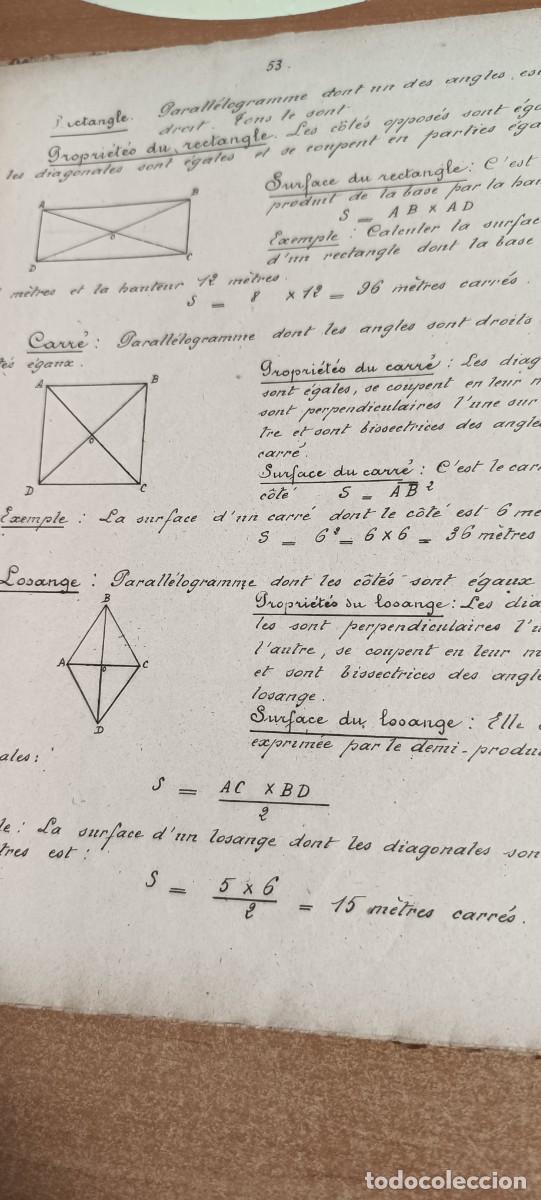 53.
Rectangle. Parallélogramme dont un des angles est
droit. Tous le sont
Propriétés du rectangle. Les côtés opposés sont éga
les diagonales sont égales et se coupent en parties éga
A B
O
D C
Surface du rectangle : C'est
produit de la base par la hau
S = AB × AD
Exemple : Calculer la surface
d'un rectangle dont la base
mètres et la hauteur 12 mètres.
S = 8 × 12 = 96 mètres carrés.
Carré : Parallélogramme dont les angles sont droits
tés égaux.
A B
O
D C
Propriétés du carré : Les diag
sont égales, se coupent en leur m
sont perpendiculaires l'une sur
tre et sont bissectrices des angle
carré.
Surface du carré : C'est le carr
côté S = AB²
Exemple : La surface d'un carré dont le côté est 6 me
S = 6² = 6 × 6 = 36 mètres
Losange : Parallélogramme dont les côtés sont égaux
B
A O C
D
Propriétés du losange : Les dia
les sont perpendiculaires l'u
l'autre, se coupent en leur m
et sont bissectrices des angle
losange.
Surface du losange : Elle
exprimée par le demi-produi
ales :
S = AC × BD
2
le : La surface d'un losange dont les diagonales son
tres est :
S = 5 × 6
2
= 15 mètres carrés.
todocoleccion